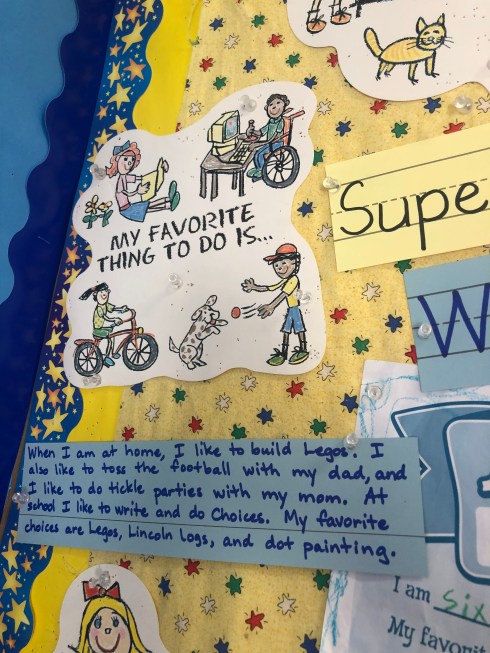 MY FAVORITE
THING TO DO IS...
Supe
W
When I am at home, I like to build Legos. I
also like to toss the football with my dad, and
I like to do tickle parties with my mom. At
school I like to write and do Choices. My favorite
choices are Legos, Lincoln Logs, and dot painting.
I am six
My favorit